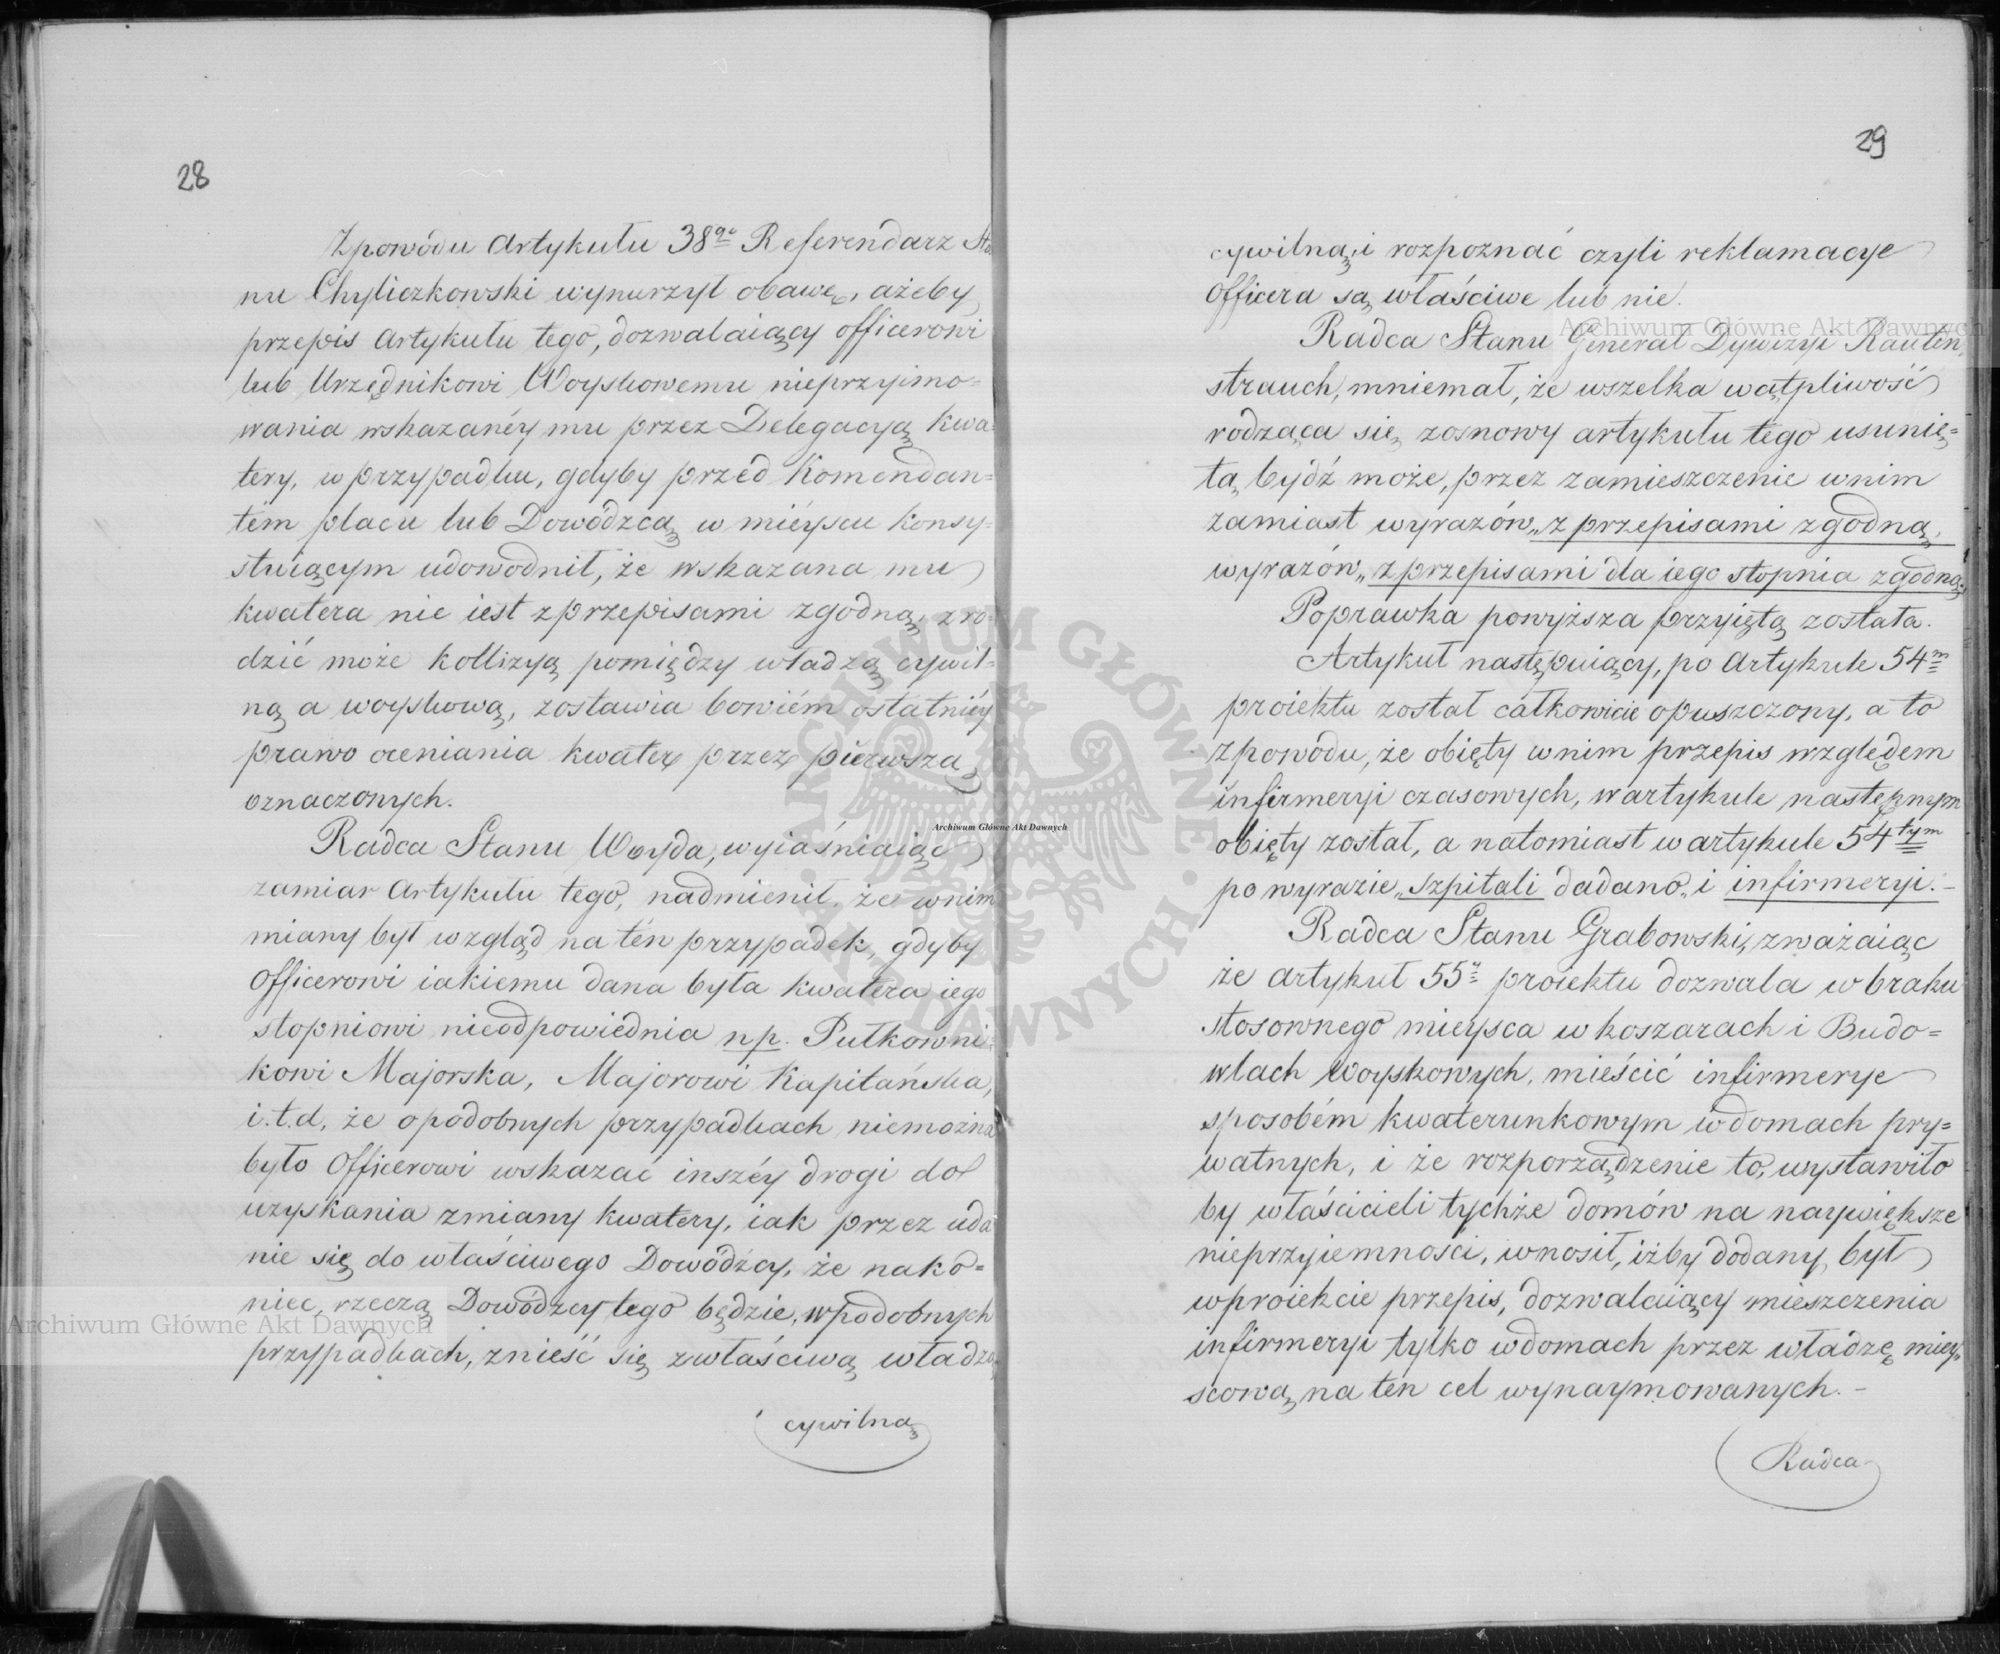 28
Zpowodu Artykułu 38go Referendarz Sta
nu Chyliczkowski wynurzył obawę, ażeby
przepis Artykułu tego, dozwalaiący officerowi
lub Urzędnikowi Woyskowemu nieprzyimo=
wania wskazanéy mu przez Delegacyą kwa=
tery, w przypadku, gdyby przed Komendan=
tem placu lub Dowódzcą w mieyscu konsy=
stuiącym udowodnił, że wskazana mu
kwatera nie iest zprzepisami zgodną, zro=
dzić może kollizyą pomiędzy władzą cywil=
ną a woyskową, zostawia bowiém ostatniéy
prawo oceniania kwater przez pierwszą
oznaczonych.
Radca Stanu Woyda, wyiaśniaiąc
zamiar Artykułu tego, nadmienił, że wnim
miany był wzgląd na ten przypadek, gdyby
Officerowi iakiemu dana była kwatera iego
stopniowi nieodpowiednia np. Pułkowni=
kowi Majorska, Majorowi Kapitańska,
i.t.d, że opodobnych przypadkach niemożna
było Officerowi wskazać inszéy drogi do
uzyskania zmiany kwatery, iak przez uda
nie się do właściwego Dowódzcy, że nako=
niec, rzeczą Dowódzcy tego będzie, wpodobnych
przypadkach, znieść się zwłaściwą władzą
cywilną
29
cywilną, i rozpoznać czyli reklamacye
Officera są właściwe lub nie.
Radca Stanu Generał Dywizyi Rauten,
strauch, mniemał, że wszelka wątpliwość
rodząca się zosnowy artykułu tego usunię=
tą bydź może, przez zamieszczenie wnim
zamiast wyrazów „z przepisami zgodną,
wyrazów „z przepisami dla iego stopnia zgodną.
Poprawka powyższa przyiętą została.
Artykuł następuiący, po Artykule 54m
proiektu został całkowicie opuszczony, a to
zpowodu, że obięty wnim przepis względem
infirmeryi czasowych, wartykule następnym
obięty został, a natomiast wartykule 54tym
po wyrazie „szpitali dadano „i infirmeryi. –
Radca Stanu Grabowski, zważaiąc
że artykuł 55y proiektu dozwala w braku
stosownego mieysca w koszarach i Budo=
wlach Woyskowych, mieścić infirmerye
sposobém kwaterunkowym wdomach pry=
watnych, i że rozporządzenie to, wystawiło
by właścicieli tychże domów na naywiększe
nieprzyiemności, wnosił, iżby dodany był
wproiekcie przepis, dozwalaiący mieszczenia
infirmeryi tylko wdomach przez władzę miey,
scową na ten cel wynaymowanych. –
Radca
Archiwum Główne Akt Dawnych
Archiwum Główne Akt Dawnych
Archiwum Główne Akt Dawnych
ARCHIWUM GŁÓWNE · AKT DAWNYCH ·